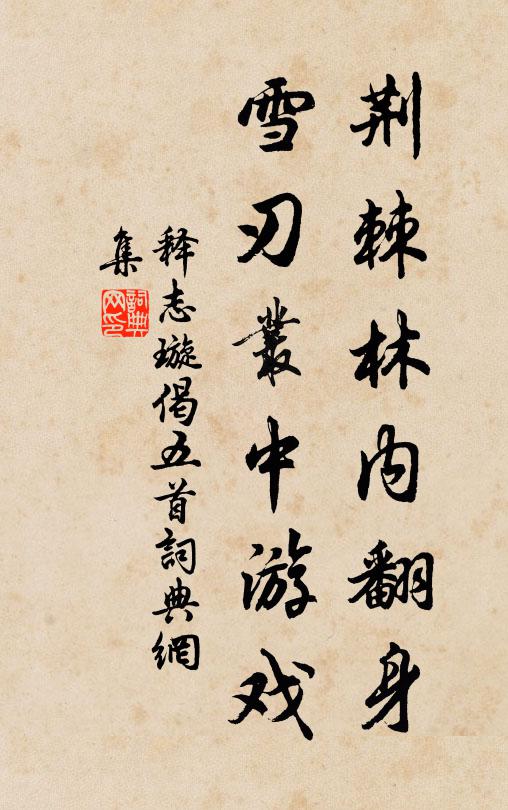 荆棘林内翻身
雪刃叢中游戏
释志璇偈五首詞典網
集
詞典网印